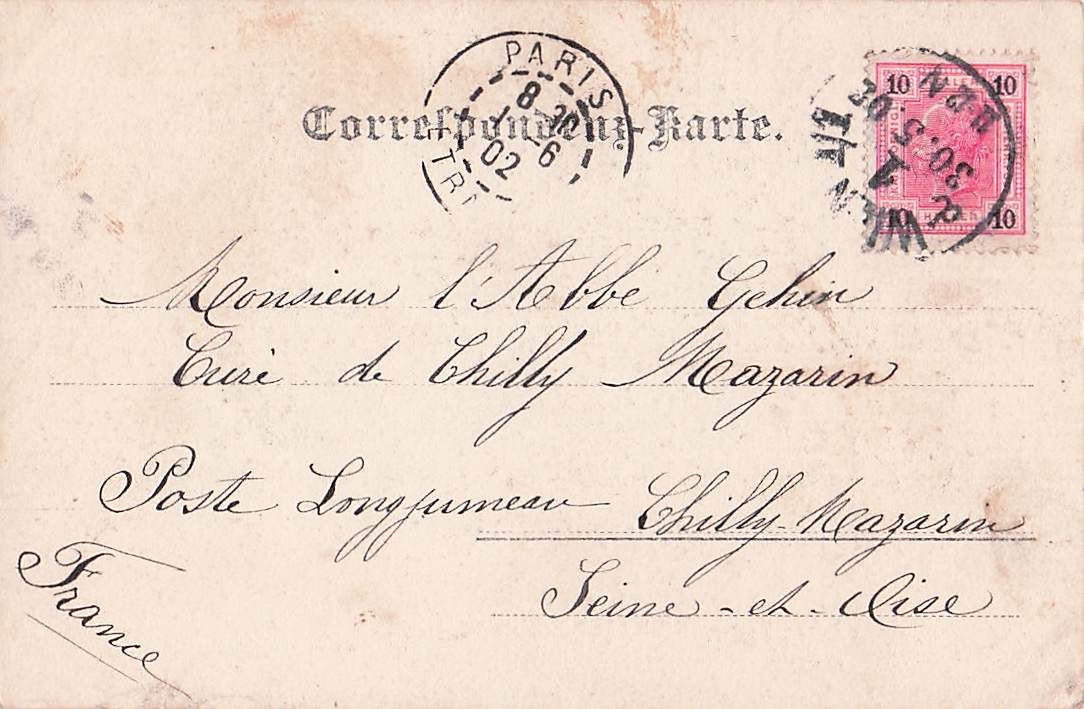 PARIS
8 30
1 - 6
02
Correspondenz-Karte.
10 HELLER 10
10 HELLER 10
WIEN
1/1
30.5.02
Monsieur l'Abbé Gehin
Curé de Chilly Mazarin
Poste Longjumeau Chilly-Mazarin
Seine-et-Oise
France